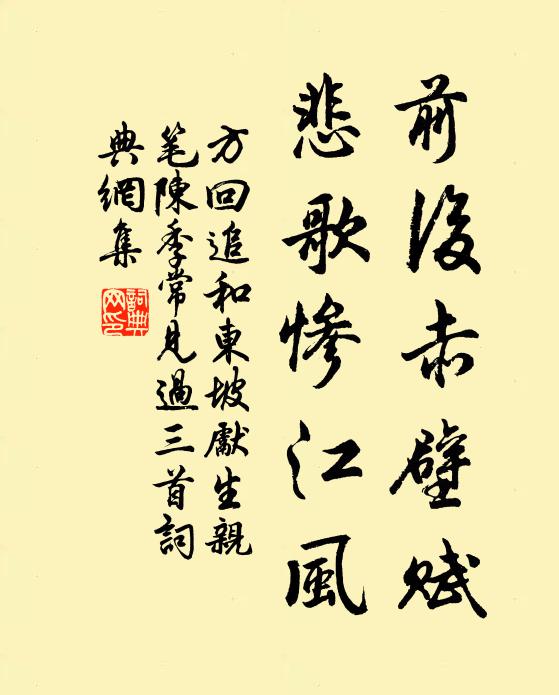 前後赤壁賦
悲歌慘江風
方回追和東坡獻生親
笔陳季常見過三首詞
典網集
詞典
网印